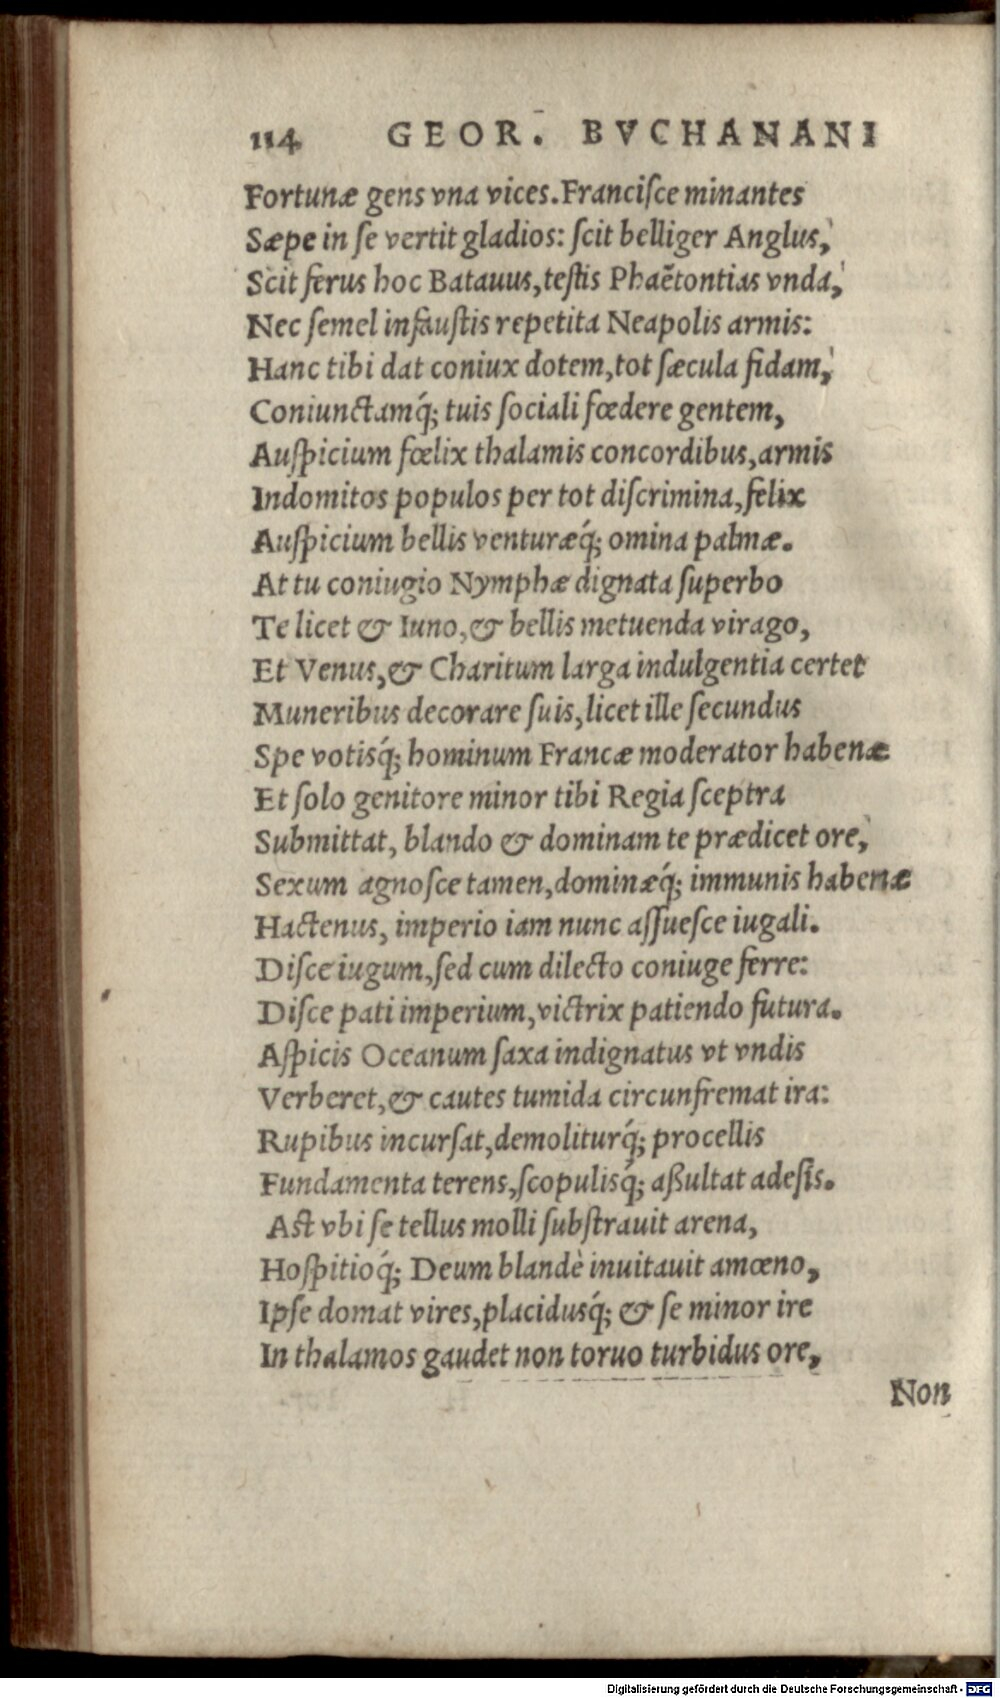 114 GEOR. BVCHANANI
Fortunæ gens vna vices. Franciſce minantes
Sæpe in ſe vertit gladios: ſcit belliger Anglus,
Scit ferus hoc Batauus, teſtis Phaëtontias vnda,
Nec ſemel infauſtis repetita Neapolis armis:
Hanc tibi dat coniux dotem, tot ſæcula fidam,
Coniunctamq́; tuis ſociali fœdere gentem,
Auſpicium fœlix thalamis concordibus, armis
Indomitos populos per tot diſcrimina, felix
Auſpicium bellis venturæq́; omina palmæ.
At tu coniugio Nymphæ dignata ſuperbo
Te licet & Iuno, & bellis metuenda virago,
Et Venus, & Charitum larga indulgentia certet
Muneribus decorare ſuis, licet ille ſecundus
Spe votisq́; hominum Francæ moderator habenæ
Et ſolo genitore minor tibi Regia ſceptra
Submittat, blando & dominam te prædicet ore,
Sexum agnoſce tamen, dominæq́; immunis habenæ
Hactenus, imperio iam nunc aſſueſce iugali.
Diſce iugum, ſed cum dilecto coniuge ferre:
Diſce pati imperium, victrix patiendo futura.
Aſpicis Oceanum ſaxa indignatus vt vndis
Verberet, & cautes tumida circunfremat ira:
Rupibus incurſat, demoliturq́; procellis
Fundamenta terens, ſcopulisq́; aßultat adeſis.
Aſt vbi ſe tellus molli ſubſtrauit arena,
Hoſpitioq́; Deum blandè inuitauit amœno,
Ipſe domat vires, placidusq́; & ſe minor ire
In thalamos gaudet non toruo turbidus ore,
Non
Digitalisierung gefördert durch die Deutsche Forschungsgemeinschaft - DFG